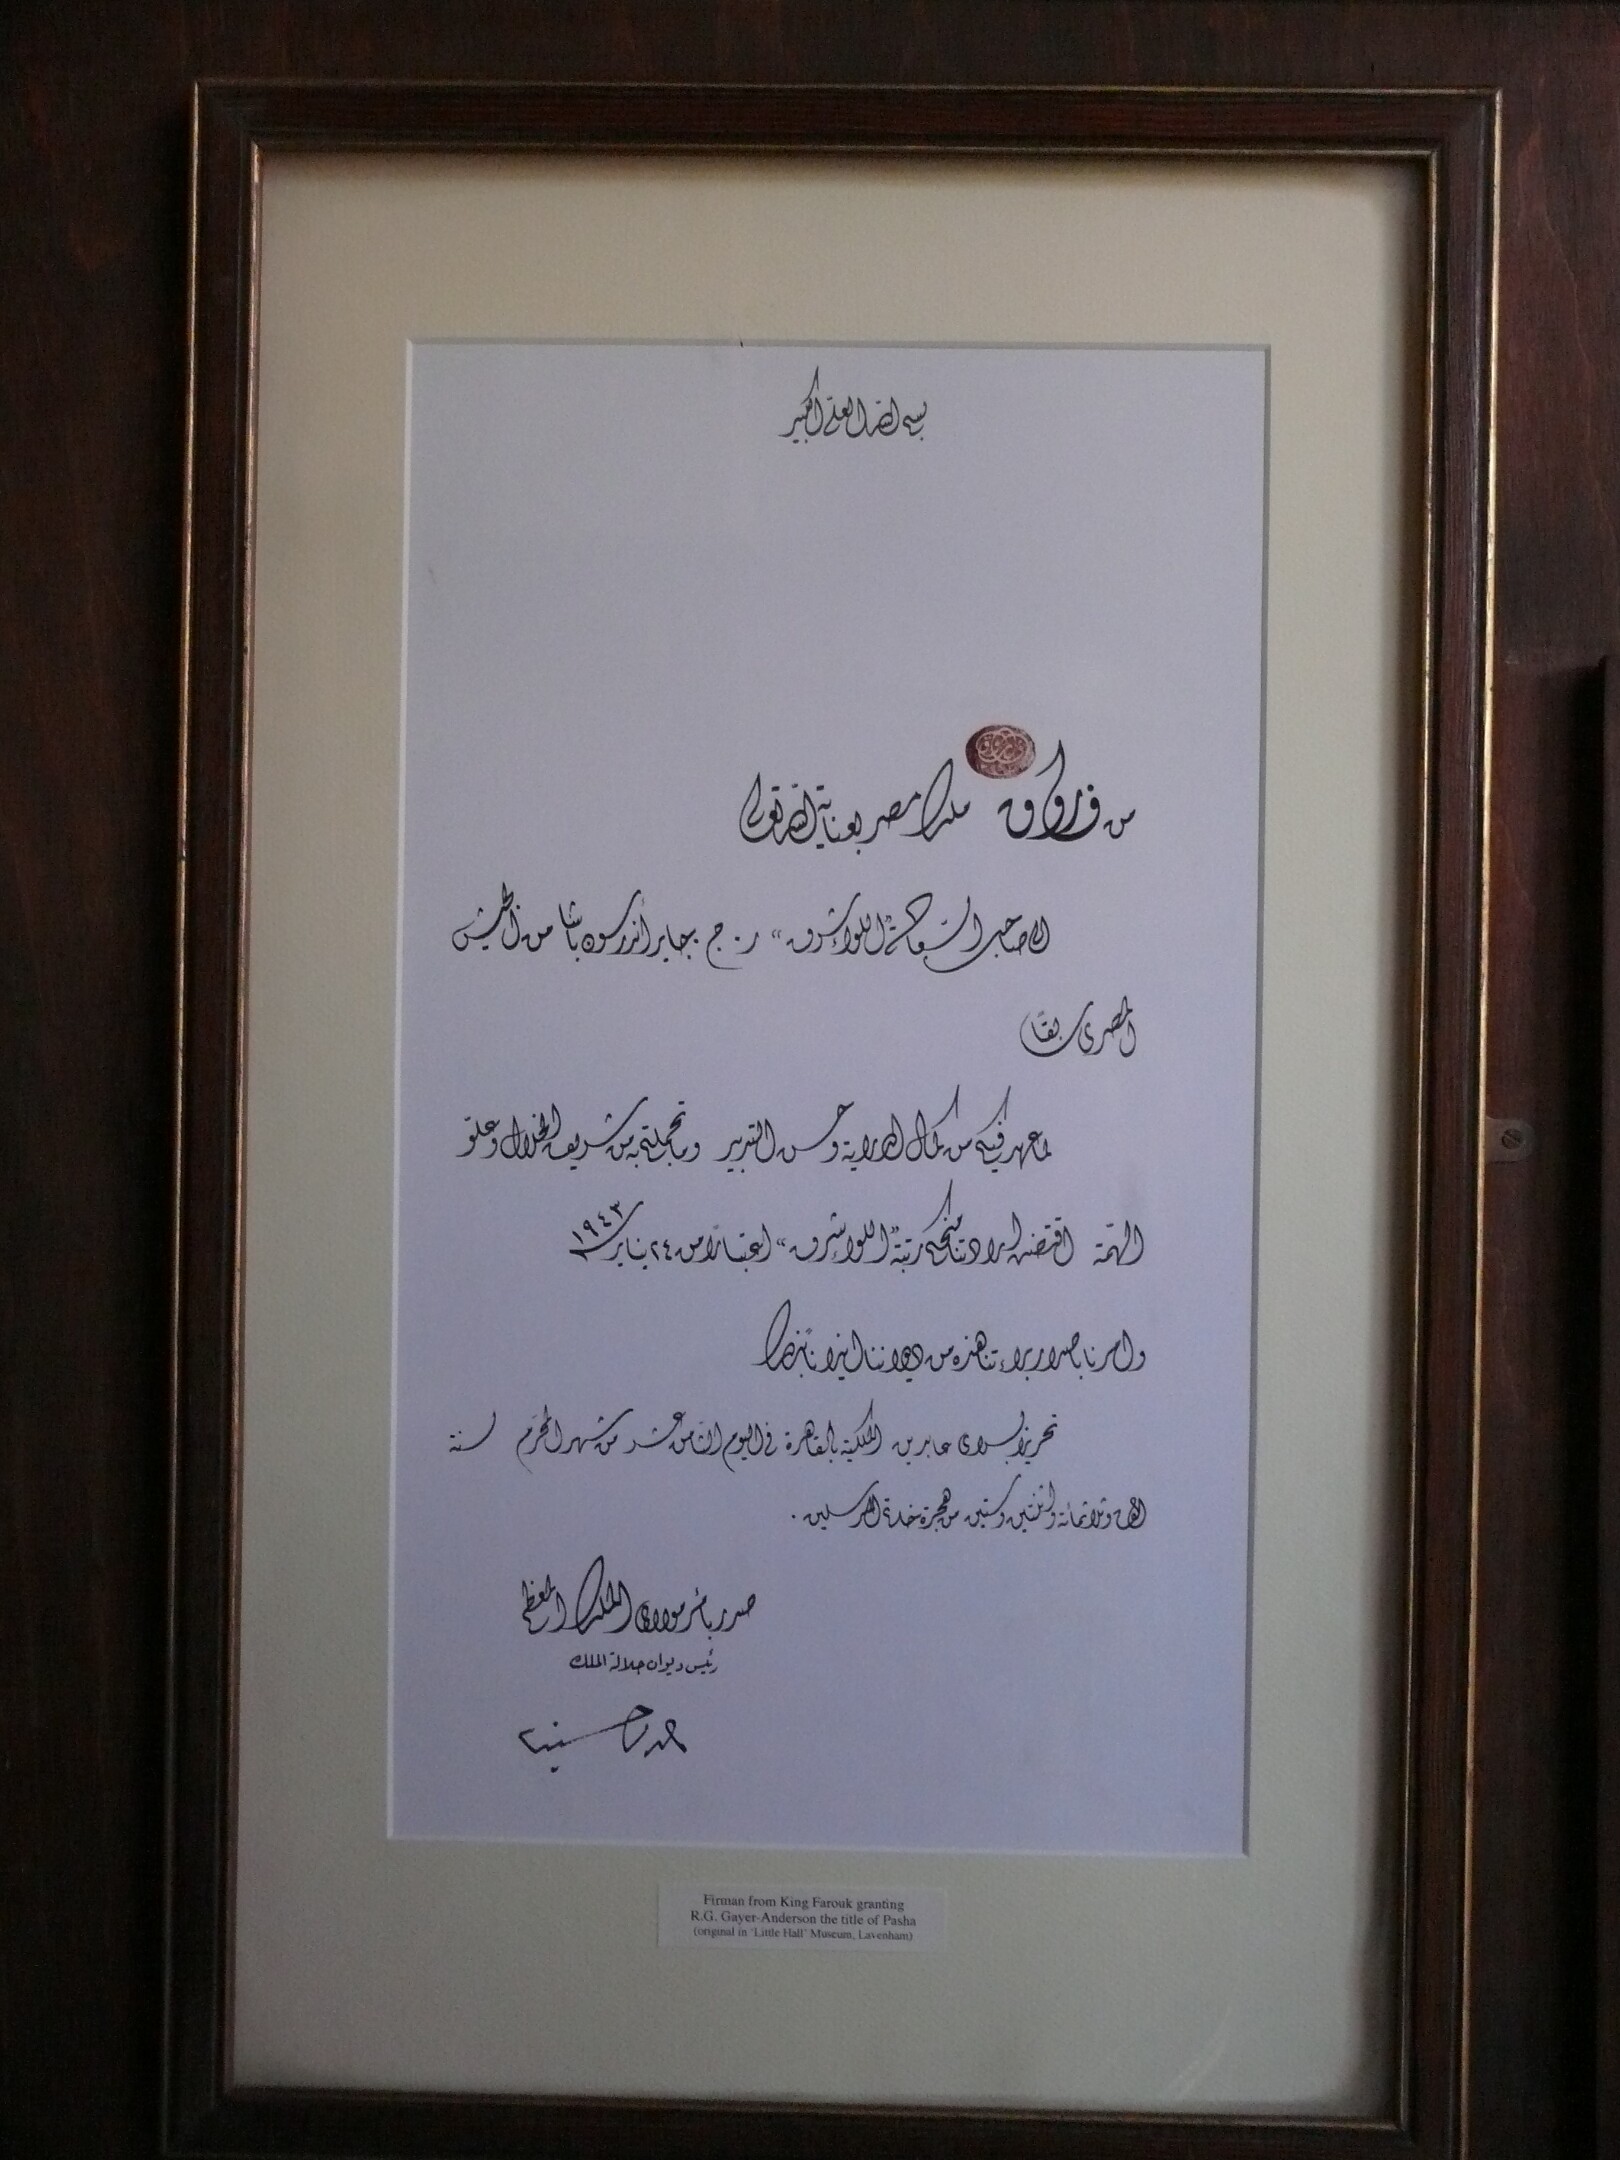 بسم الله العلى الكبير
فاروق
من فاروق ملك مصر بعناية الله تعالى
الى صاحب السعادة اللواء شرف " ر. ج. جاير أندرسون باشا من الجيش
المصرى سابقا
لما عهد فيكم من كمال الدراية وحسن التدبير وما تحليتم به من شريف الخلال وعلو
الهمة اقتضت ارادتنا منحكم رتبة "اللواء شرف" اعتبارا من ٢٤ يناير سنة ١٩٤٣
وامرنا باصدار براءتنا هذه من ديواننا ايذانا بذلك
تحريرا بسراى عابدين الملكية بالقاهرة فى اليوم الثامن عشر من شهر المحرم لسنة
الف وثلاثمائة واثنتين وستين من هجرة خاتم المرسلين.
صدر بأمر مولاى الملك المعظم
رئيس ديوان جلالة الملك
احمد حسنين
Firman from King Farouk granting
R.G. Gayer-Anderson the title of Pasha
(original in 'Little Hall' Museum, Lavenham)